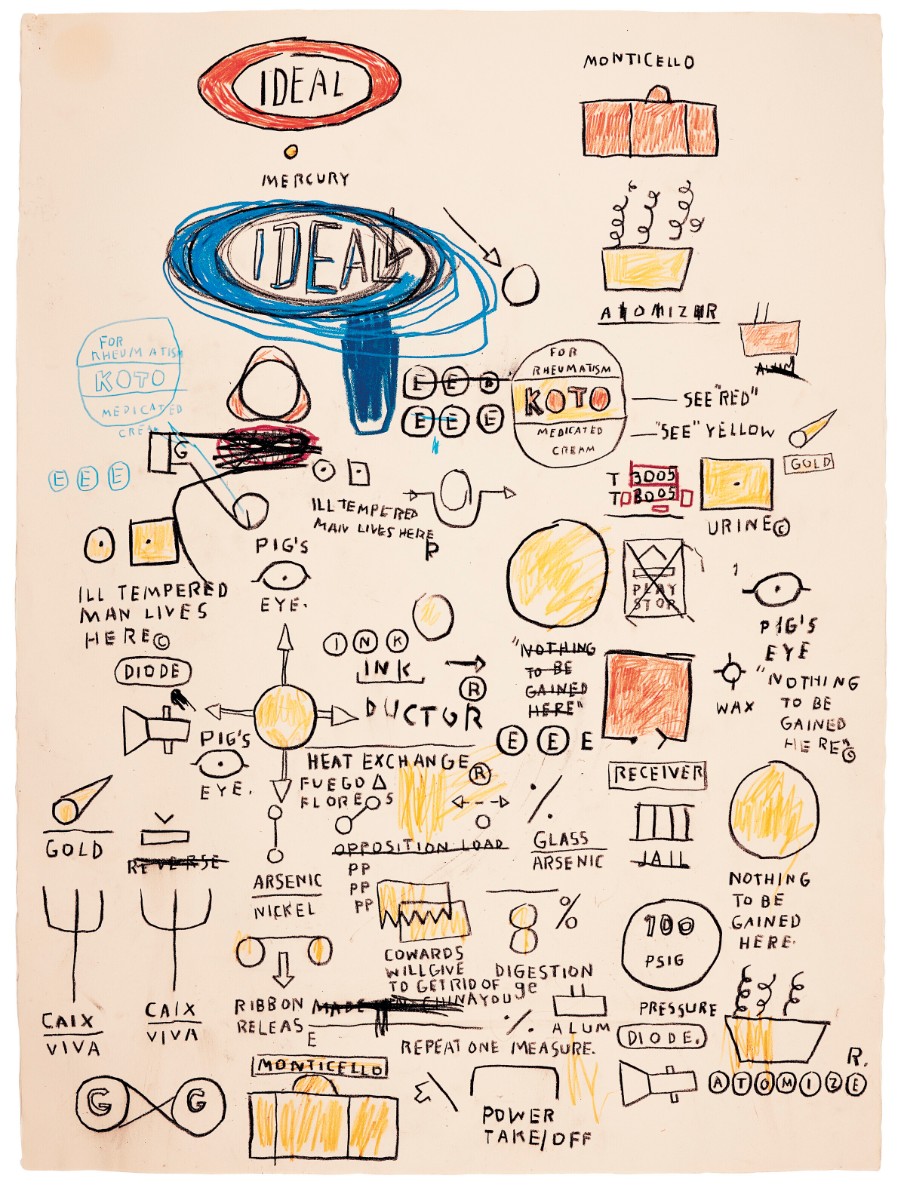 IDEAL
MONTICELLO
MERCURY
IDEAL
ATOMIZER
ALUM
FOR
RHEUMATISM
KOTO
MEDICATED
CREAM
E E E
E E E
FOR
RHEUMATISM
KOTO
MEDICATED
CREAM
SEE "RED"
"SEE" YELLOW
GOLD
G
E E E
T 3005
T 8005
URINE©
ILL TEMPERED
MAN LIVES HERE
P
PIG'S
EYE.
ILL TEMPERED
MAN LIVES
HERE©
PLAY
STOP
PIG'S
EYE
DIODE
INK
INK
®
DUCTOR
"NOTHING
TO BE
GAINED
HERE"
E E E
WAX
"NOTHING
TO BE
GAINED
HERE"©
PIG'S
EYE.
HEAT EXCHANGE ®
FUEGO
FLORES
RECEIVER
GOLD
REVERSE
OPPOSITION LOAD
GLASS
ARSENIC
JAIL
ARSENIC
NICKEL
PP
PP
PP
8 %
NOTHING
TO BE
GAINED
HERE.
100
PSIG
PRESSURE
COWARDS
WILL GIVE
TO GET RID OF
YOU
DIGESTION
ge
CAIX
VIVA
CAIX
VIVA
RIBBON MADE IN CHINA
RELEAS
E
%
ALUM
REPEAT ONE MEASURE.
DIODE.
R.
ATOMIZE
MONTICELLO
G G
POWER
TAKE/OFF